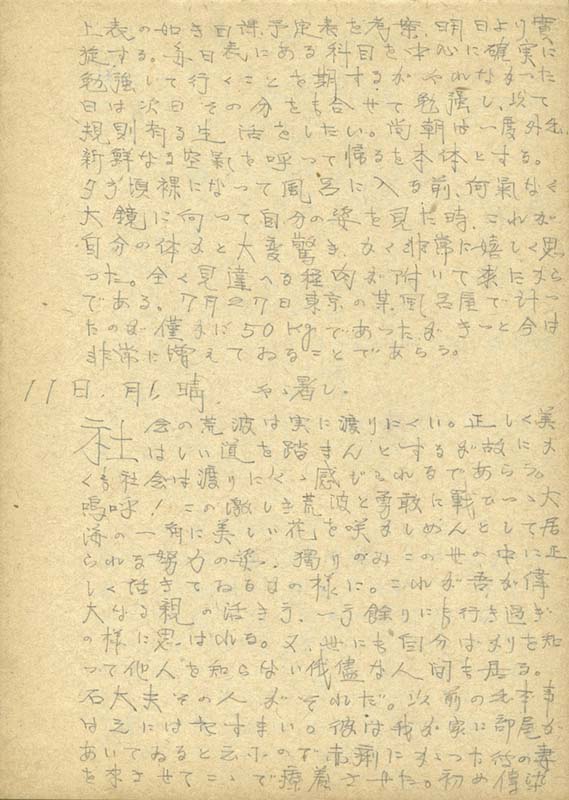 上表の如き日課予定表を考案、明日より實
施する。亦日表にある科目を中心に確実に
勉強して行くことを期するがやれなかった
日は次日その分をも合せて勉強し、以て
規則有る生活をしたい。尚朝は一度外出、
新鮮なる空氣を呼って帰るを本体とする。
夕方頃裸になって風呂に入る前、何氣なく
大鏡に向って自分の姿を見た時、これが
自分の体かと大変驚き、かく非常に嬉しく思
った。全く見違へる程肉が附いて来たから
である。7月27日東京の某風呂屋で計っ
たのが僅かに50Kgであったがきっと今は
非常に増えてゐることであらう。
11日、月、晴、やゝ暑し、
社会の荒波は実に渡りにくい。正しく美
はしい道を踏まんとするが故にか
くも社会は渡りにくゝ感ぜられるであらう。
嗚呼! この激しき荒波と勇敢に戦ひつゝ大
海の一角に美しい花を咲かしめんとして居
られる努力の姿、獨りのみこの世の中に正
しく活きてゐるかの様に。これが吾が偉
大なる親の活き方、一方餘りにも行き過ぎ
の様に思はれる。又、世にも自分ばかりを知
って他人を知らない我儘な人間も居る。
石大夫その人がそれだ。以前の出来事
は云にはたすまい。彼は我が家に部屋が
あいてゐると云ふので赤痢にかゝった彼の妻
を来させてこゝで療養させた。初め傳染